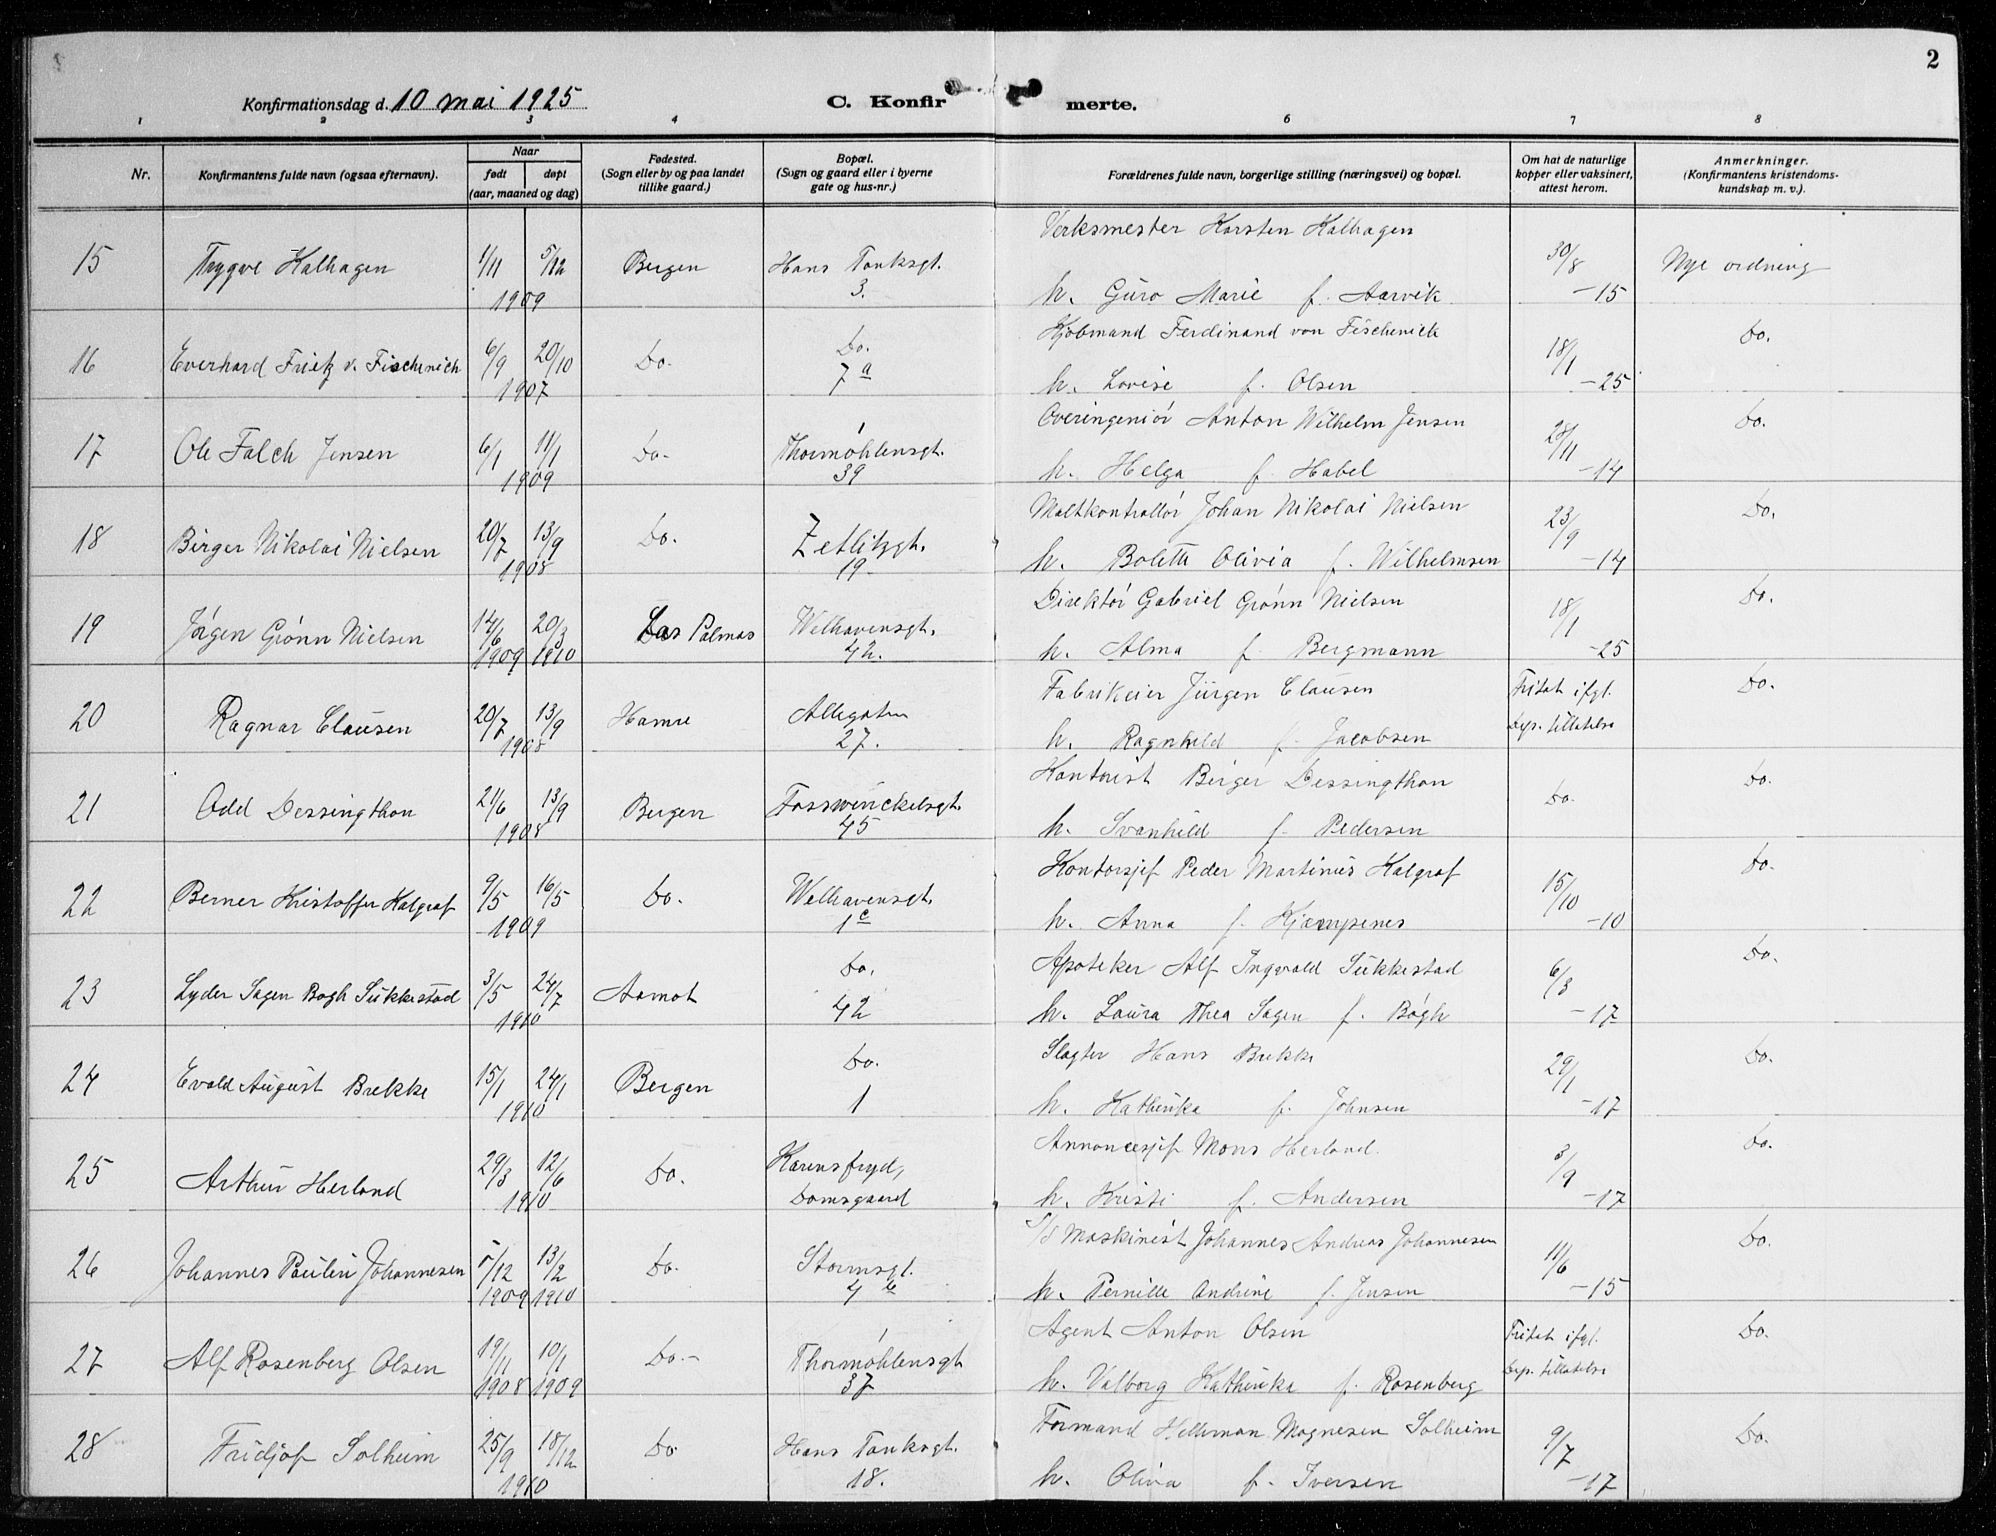 2
Konfirmationsdag d. 10 mai 1925
C. Konfirmerte.
1 2 3 4 6 7 8
Nr. Konfirmantens fulde navn (ogsaa efternavn). Naar født døpt (aar, maaned og dag) Fødested. (Sogn eller by og paa landet tillike gaard.) Bopæl. (Sogn og gaard eller i byerne gate og hus-nr.) Forældrenes fulde navn, borgerlige stilling (næringsvei) og bopæl. Om hat de naturlige kopper eller vaksinert, attest herom. Anmerkninger. (Konfirmantens kristendomskundskap m. v.).
Verksmester Karsten Kalhagen
15 Trygve Kalhagen 1/11 5/12 Bergen Hans Tanksgt. 30/8 Nye ordning
1909 3. h. Guro Marie f. Aarvik -15
Kjøbmand Ferdinand von Fischenich
16 Everhard Fritz v. Fischenich 6/9 20/10 Do. Do. 18/1 Do.
1907 7a h. Lovise f. Olsen -25
Overingeniør Anton Wilhelm Jensen
17 Ole Falch Jensen 6/1 11/1 Do. Thormøhlensgt. 28/11 Do.
1909 39 h. Helga f. Habel -14
Maltkontrollør Johan Nikolai Nielsen
18 Birger Nikolai Nielsen 20/7 13/9 Do. Zetlitzgt. 23/9 Do.
1908 19 h. Bolette Olivia f. Wilhelmsen -14
Direktør Gabriel Grønn Nielsen
19 Jørgen Grønn Nielsen 14/6 20/3 Las Palmas Welhavensgt. 18/1 Do.
1909 1910 42. h. Alma f. Bergmann -25
Fabrikeier Jürgen Clausen Fritat ifgl.
20 Ragnar Clausen 20/7 13/9 Hamre Allegaten Dep. tillatelse Do.
1908 27. h. Ragnhild f. Jacobsen
Kontorist Birger Dessingthon
21 Odd Dessingthon 21/6 13/9 Bergen Fosswinckelsgt. Do. Do.
1908 45 h. Svanhild f. Pedersen
Kontorsjef Peder Martinus Kalgraf
22 Berner Kristoffer Kalgraf 9/5 16/5 Do. Welhavensgt. 15/10 Do.
1909 1c h. Anna f. Kjæmpenes -10
Apoteker Alf Ingvald Sukkestad
23 Lyder Sagen Bøgh Sukkestad 3/5 24/7 Aamot Do. 6/3 Do.
1910 42 h. Laura Thea Sagen f. Bøgh -17
Slagter Hans Brekke
24 Evald August Brekke 15/1 24/1 Bergen Do. 29/1 Do.
1910 1 h. Kathinka f. Johnsen -17
Annoncesjef Mons Herland.
25 Arthur Herland 29/3 12/6 Do. Karensfryd, 3/9 Do.
1910 Damsgaard h. Kristi f. Andersen -17
S/S Maskinist Johannes Andreas Johannesen
26 Johannes Paulin Johannesen 5/12 13/2 Do. Stormsgt. 11/6 Do.
1909 1910 4b h. Pernille Andrine f. Jensen -15
Agent Anton Olsen Fritat ifgl.
27 Alf Rosenberg Olsen 19/11 10/1 Do. Thormøhlensgt Dep. tillatelse Do.
1908 1909 37 h. Valborg Kathinka f. Rosenberg
Formand Helleman Magnesen Solheim
28 Fridjof Solheim 25/9 18/12 Do Hans Tanksgt. 9/7 Do.
1910 18. h. Oliva f. Iversen -17